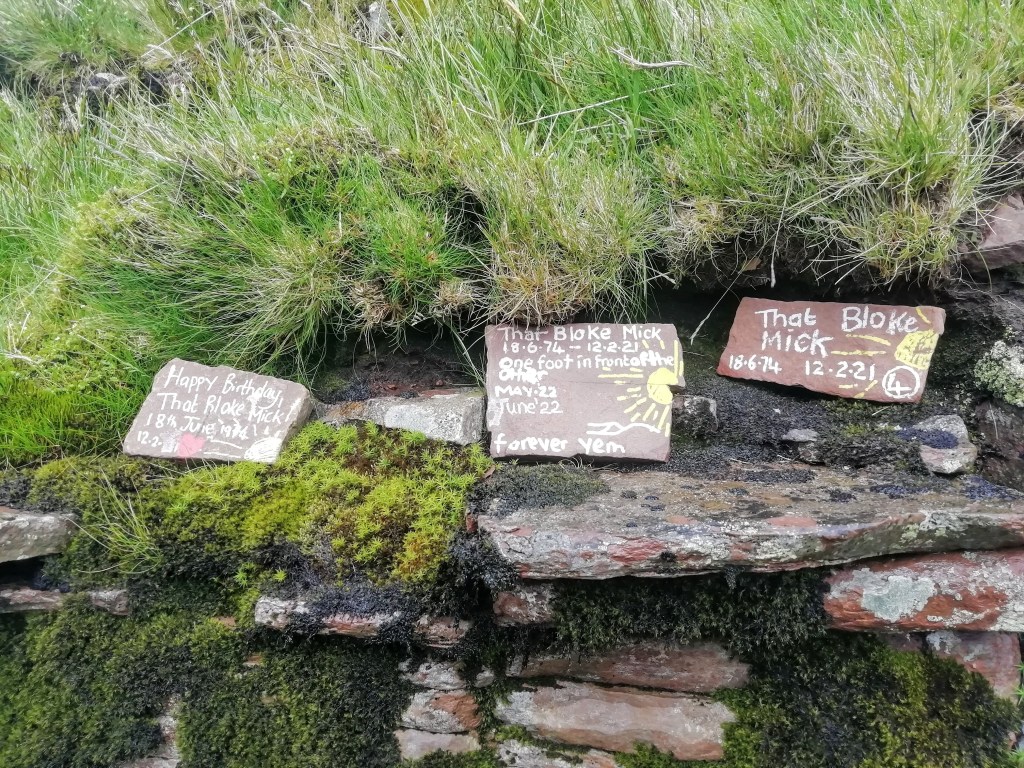 Happy Birthday,
That Bloke Mick!
18th June 1974!
12.2.
That Bloke Mick
18.6.74 - 12.2.21
one foot in front of the
other
MAY.22
June'22
forever yem
That Bloke
MICK
18.6.74 12.2.21
4